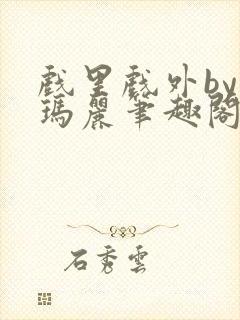 戲里戲外by
瑪麗筆趣閣
石秀雲